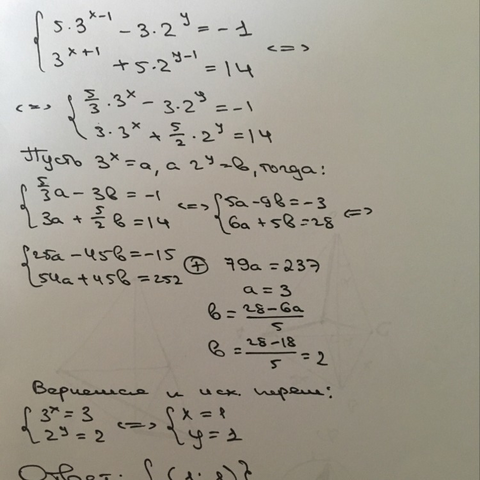 { 5·3^(x-1) - 3·2^y = -1
{ 3^(x+1) + 5·2^(y-1) = 14 <=>
<=> { 5/3·3^x - 3·2^y = -1
{ 3·3^x + 5/2·2^y = 14
Пусть 3^x = a, а 2^y = в, тогда:
{ 5/3a - 3в = -1
{ 3a + 5/2в = 14 <=> { 5a - 9в = -3
{ 6a + 5в = 28 <=>
{ 25a - 45в = -15
{ 54a + 45в = 252 (+) 79a = 237
a = 3
в = (28-6a)/5
в = (28-18)/5 = 2
Вернемся к исх. перем:
{ 3^x = 3
{ 2^y = 2 <=> { x = 1
{ y = 1
Ответ: {(1;1)}